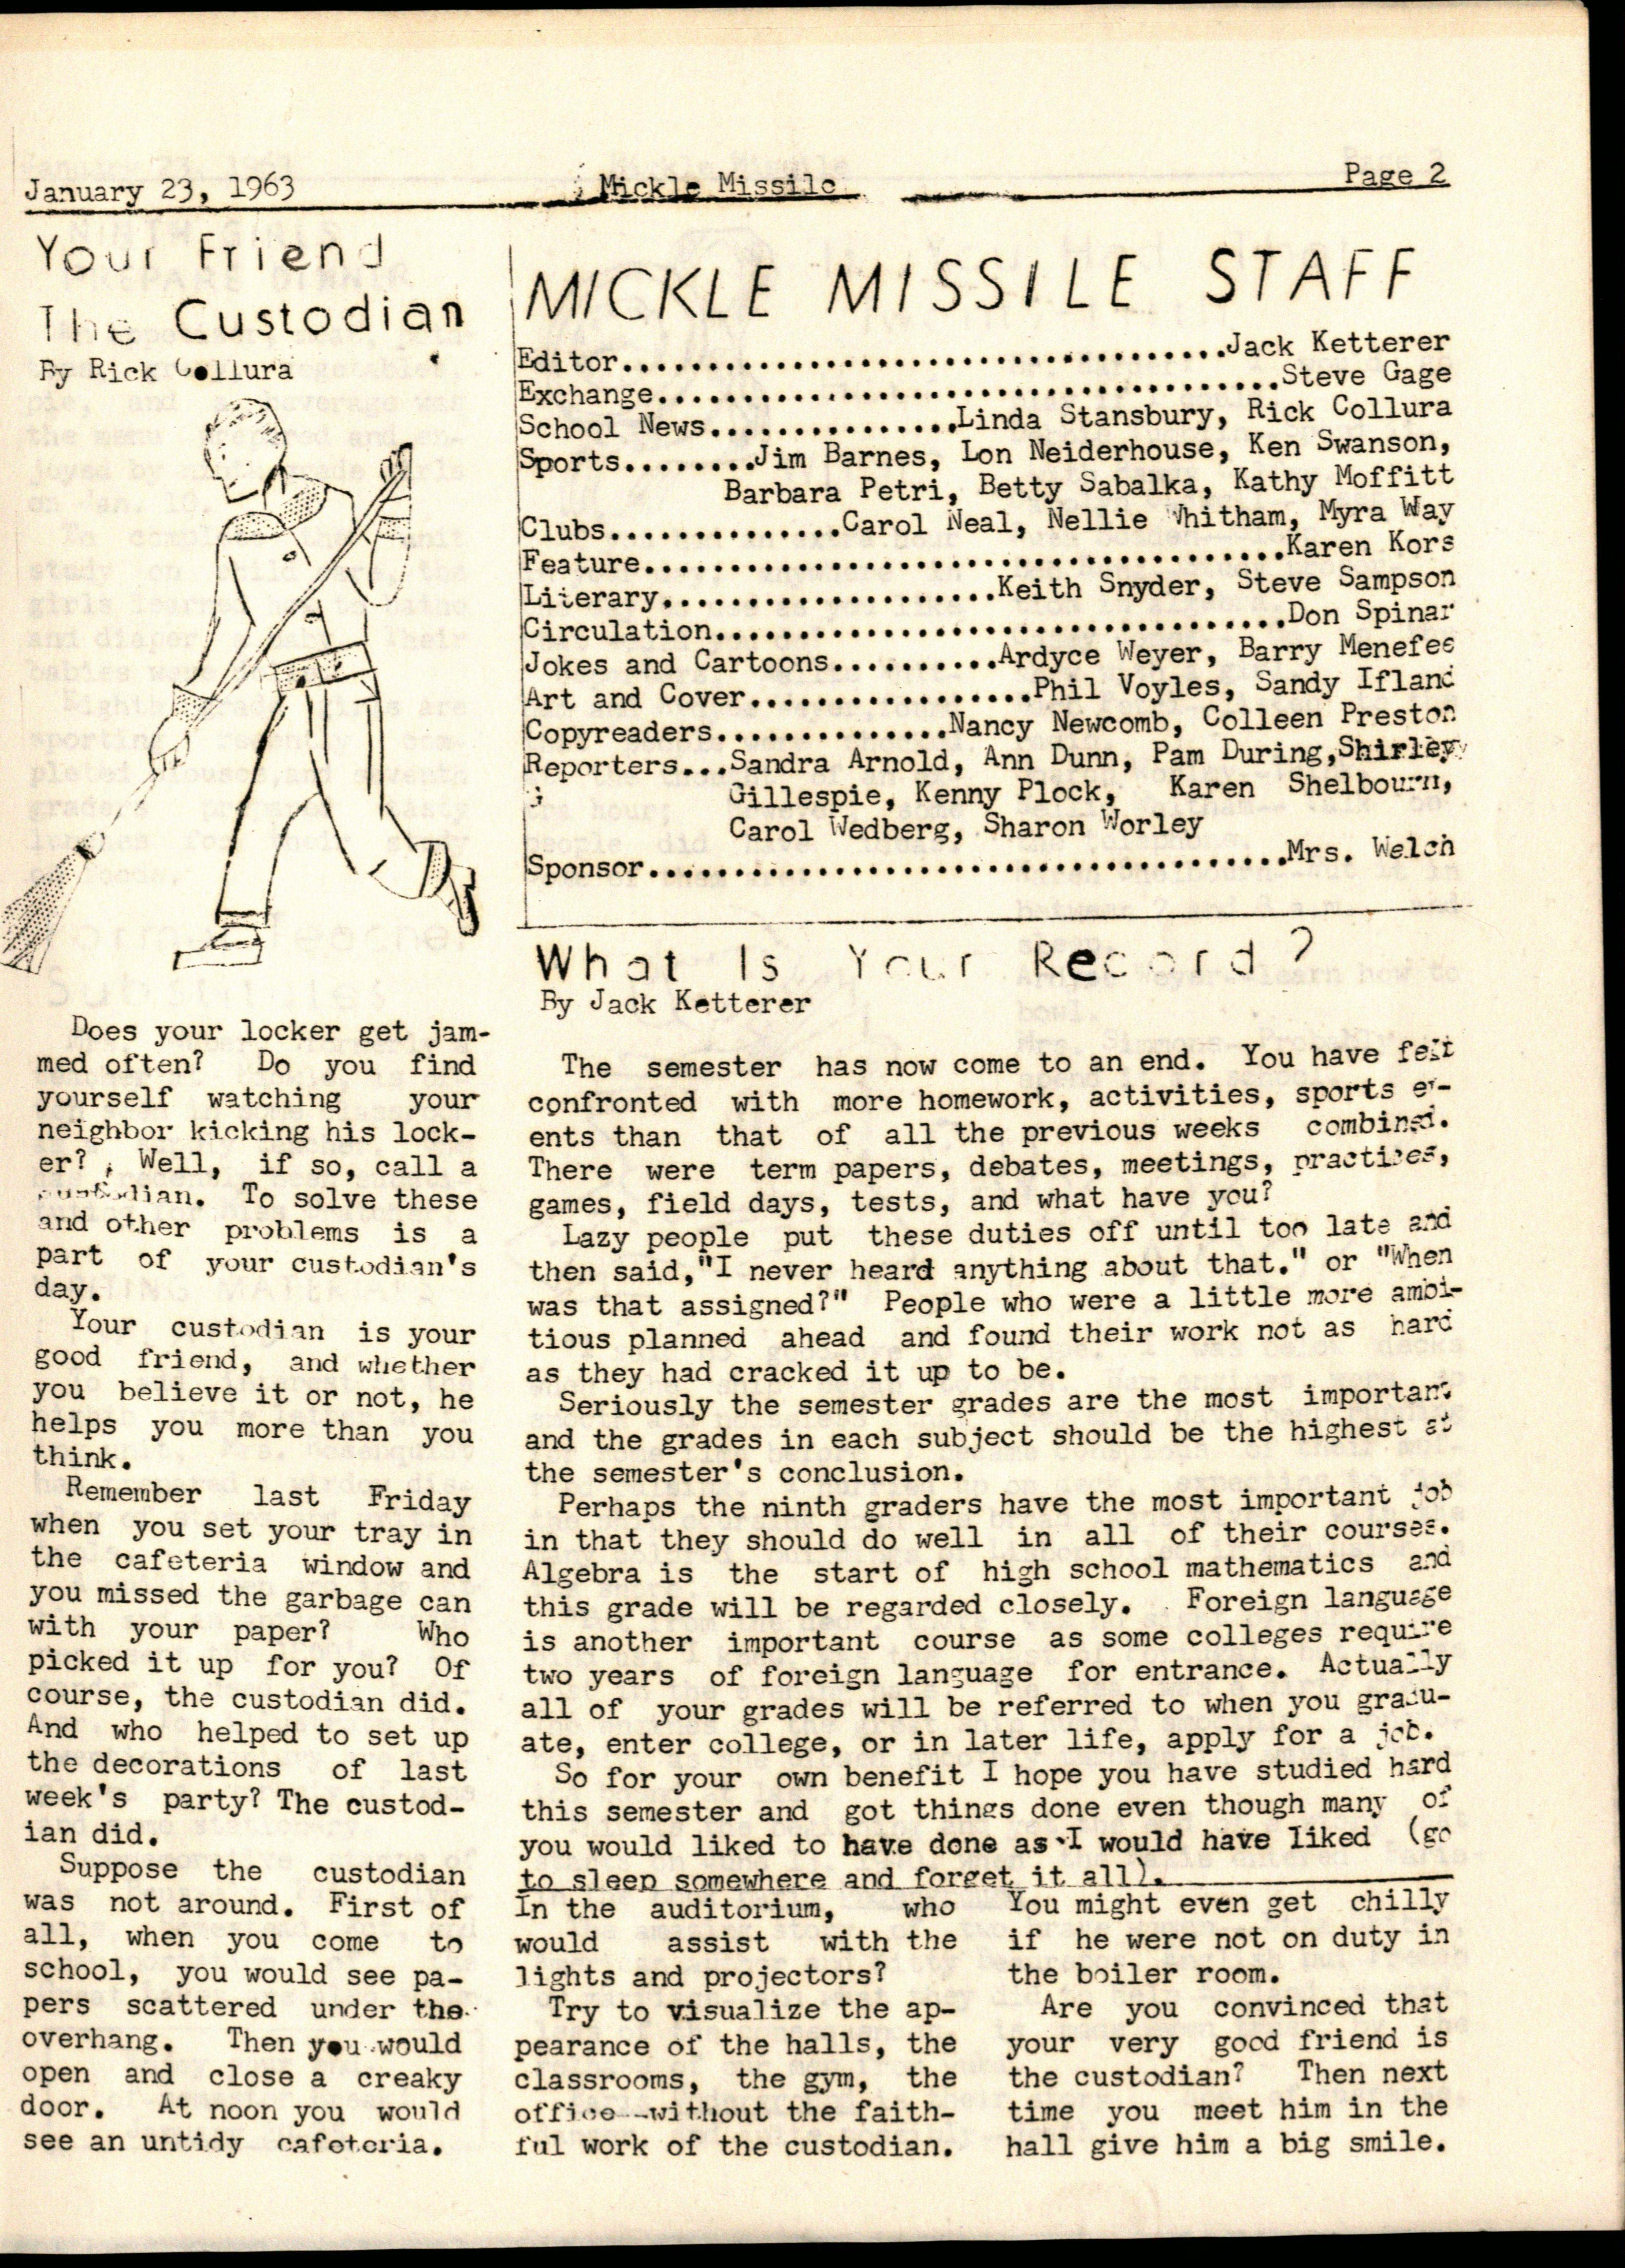 January 23, 1963
Mickle Missile
Page 2
Your Friend
The Custodian
By Rick Collura
Does your locker get jam-
med often? Do you find
yourself watching your
neighbor kicking his lock-
er? Well, if so, call a
custodian. To solve these
and other problems is a
part of your custodian's
day.
Your custodian is your
good friend, and whether
you believe it or not, he
helps you more than you
think.
Remember last Friday
when you set your tray in
the cafeteria window and
you missed the garbage can
with your paper? Who
picked it up for you? Of
course, the custodian did.
And who helped to set up
the decorations of last
week's party? The custod-
ian did.
Suppose the custodian
was not around. First of
all, when you come to
school, you would see pa-
pers scattered under the
overhang. Then you would
open and close a creaky
door. At noon you would
see an untidy cafeteria.
In the auditorium, who
would assist with the
lights and projectors?
Try to visualize the ap-
pearance of the halls, the
classrooms, the gym, the
office--without the faith-
ful work of the custodian.
You might even get chilly
if he were not on duty in
the boiler room.
Are you convinced that
your very good friend is
the custodian? Then next
time you meet him in the
hall give him a big smile.
MICKLE MISSILE STAFF
Editor....................................Jack Ketterer
Exchange.....................................Steve Gage
School News...............Linda Stansbury, Rick Collura
Sports........Jim Barnes, Lon Neiderhouse, Ken Swanson,
Barbara Petri, Betty Sabalka, Kathy Moffitt
Clubs..............Carol Neal, Nellie Whitham, Myra Way
Feature......................................Karen Kors
Literary....................Keith Snyder, Steve Sampson
Circulation..................................Don Spinar
Jokes and Cartoons..........Ardyce Weyer, Barry Menefee
Art and Cover.................Phil Voyles, Sandy Ifland
Copyreaders..............Nancy Newcomb, Colleen Preston
Reporters...Sandra Arnold, Ann Dunn, Pam During,Shirley
Gillespie, Kenny Plock, Karen Shelbourn,
Carol Wedberg, Sharon Worley
Sponsor......................................Mrs. Welch
What Is Your Record?
By Jack Ketterer
The semester has now come to an end. You have felt
confronted with more homework, activities, sports ev-
ents than that of all the previous weeks combined.
There were term papers, debates, meetings, practices,
games, field days, tests, and what have you?
Lazy people put these duties off until too late and
then said,"I never heard anything about that." or "When
was that assigned?" People who were a little more ambi-
tious planned ahead and found their work not as hard
as they had cracked it up to be.
Seriously the semester grades are the most important
and the grades in each subject should be the highest at
the semester's conclusion.
Perhaps the ninth graders have the most important job
in that they should do well in all of their courses.
Algebra is the start of high school mathematics and
this grade will be regarded closely. Foreign language
is another important course as some colleges require
two years of foreign language for entrance. Actually
all of your grades will be referred to when you gradu-
ate, enter college, or in later life, apply for a job.
So for your own benefit I hope you have studied hard
this semester and got things done even though many of
you would liked to have done as I would have liked (go
to sleep somewhere and forget it all).